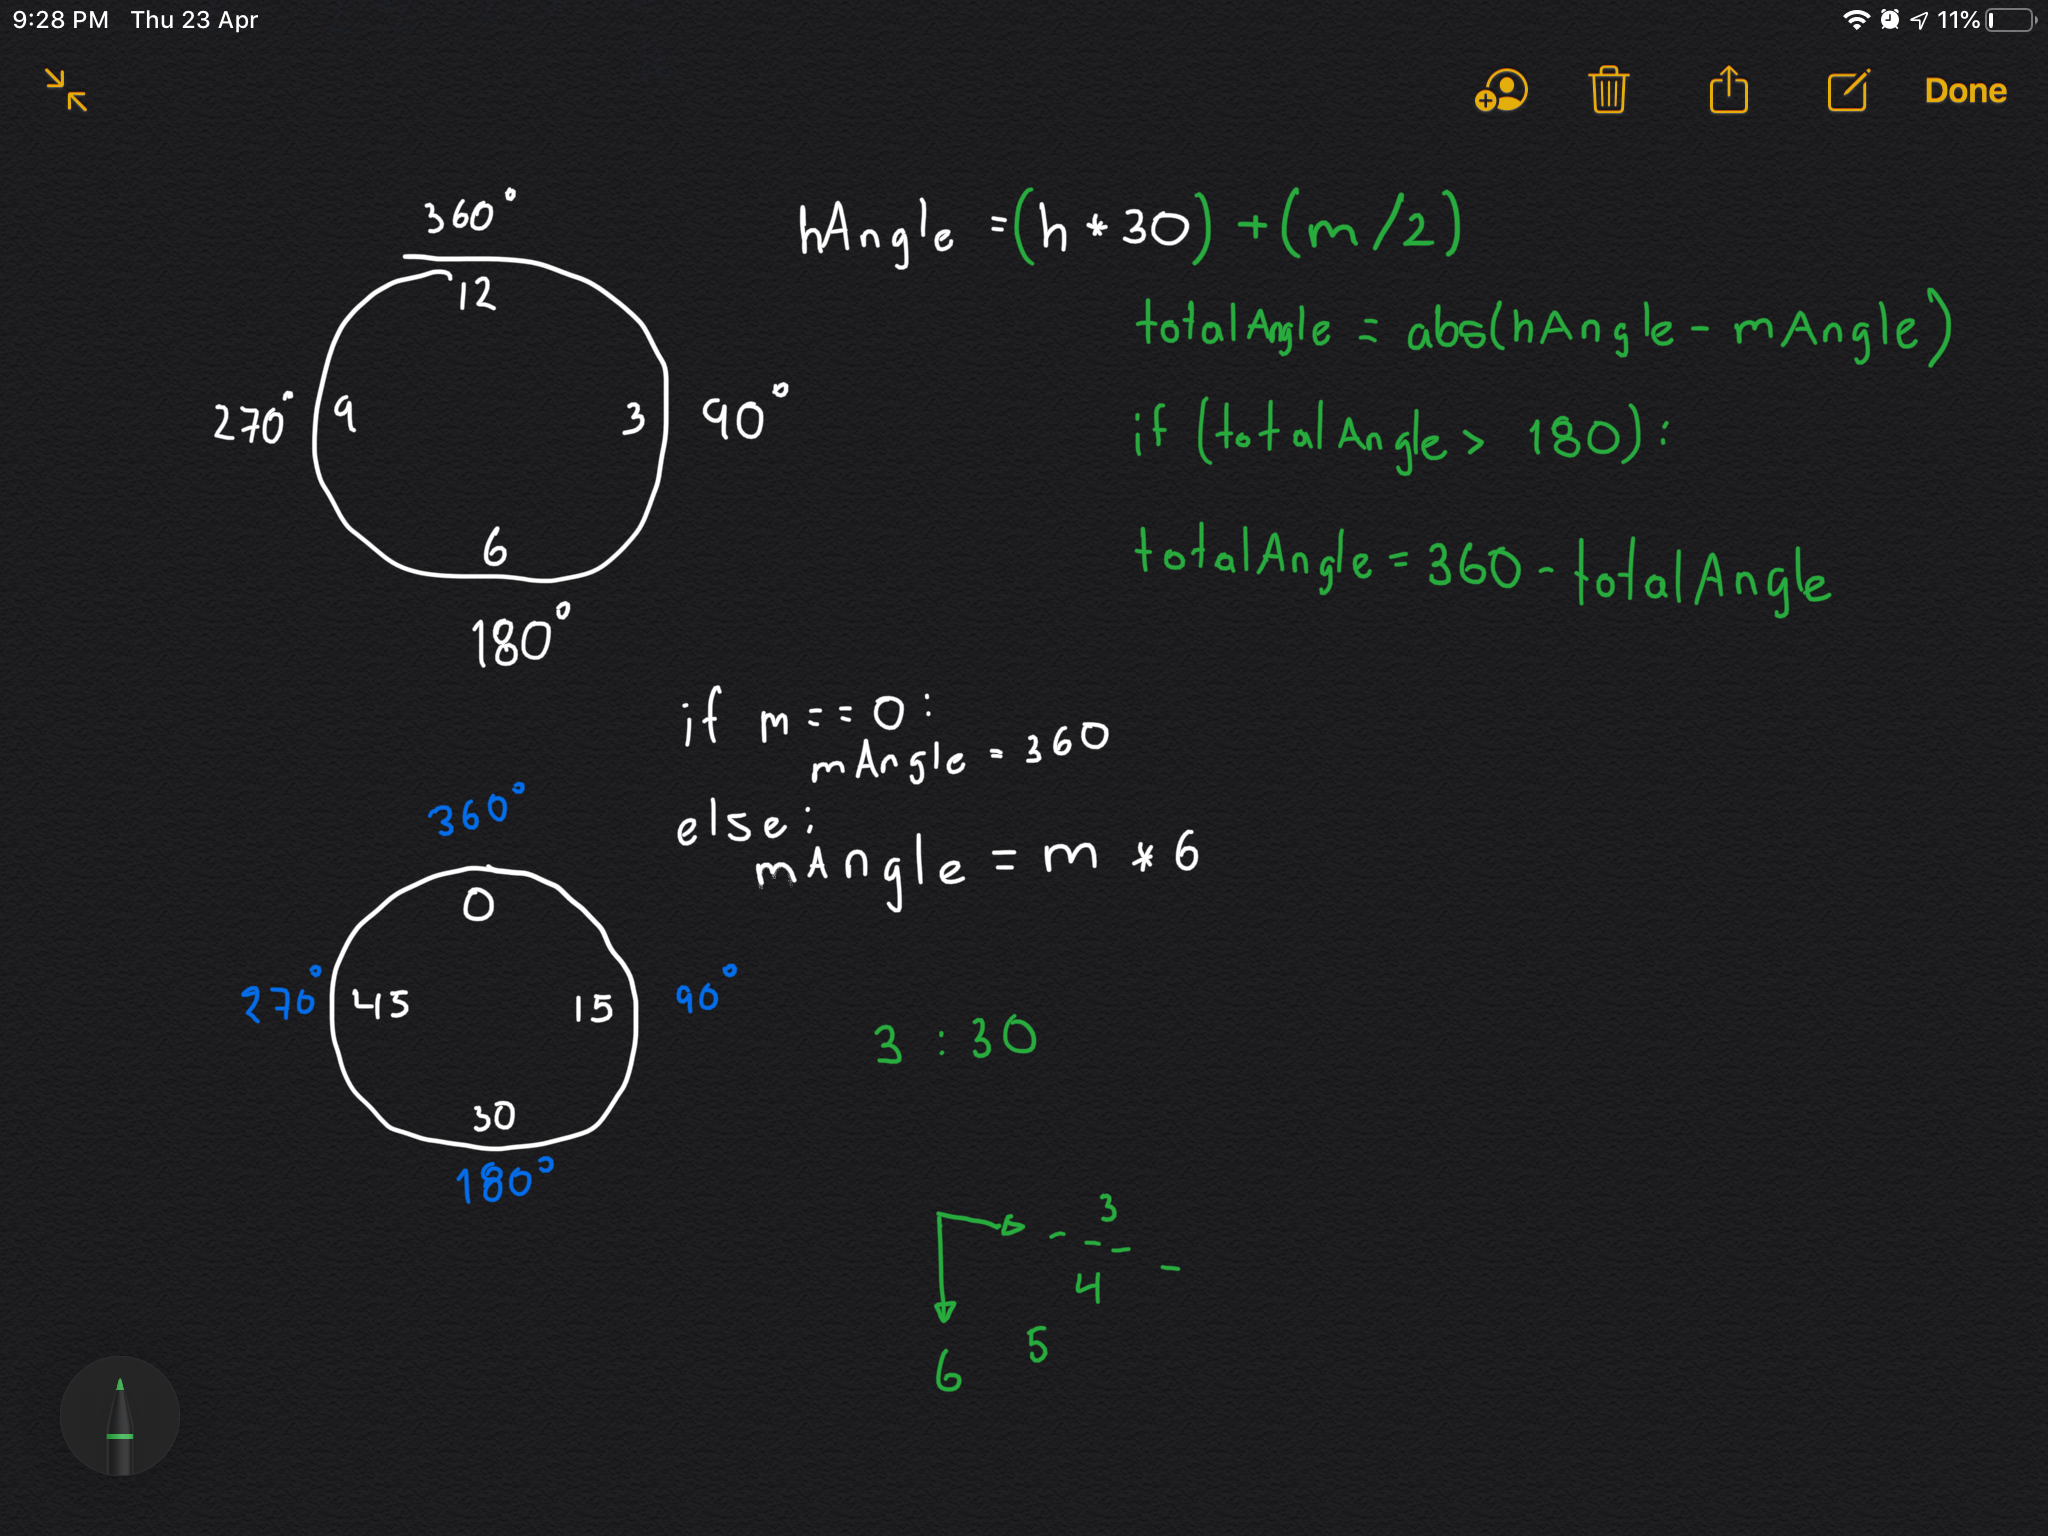 9:28 PM Thu 23 Apr
11%
Done
360°
12
270°
9
3
90°
6
180°
hAngle = (h * 30) + (m/2)
totalAngle = abs(hAngle - mAngle)
if (totalAngle > 180):
totalAngle = 360 - totalAngle
if m == 0:
mAngle = 360
else:
mAngle = m * 6
360°
0
270°
45
15
90°
30
180°
3 : 30
3
4
5
6